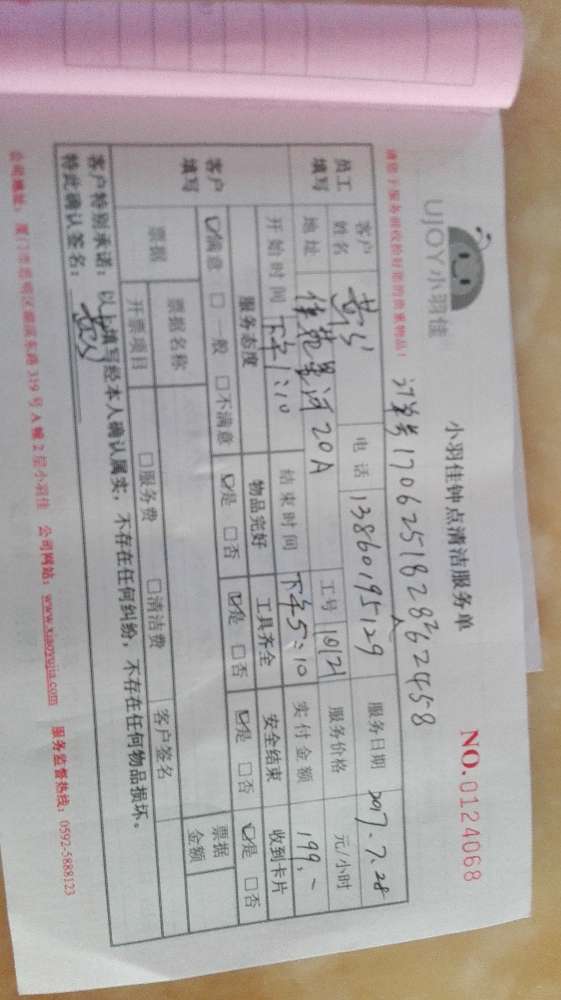 UJOY小羽佳
小羽佳钟点清洁服务单
NO.0124068
请您于服务前收拾好您的贵重物品!
订单号170625182826 2458
员工填写
客户姓名 黄 电话 13860195129 服务日期 2017.7.28
地址 佳苑星河20A 工号 10121 服务价格 元/小时
开始时间 下午1:10 结束时间 下午5:10 实付金额 199.-
客户填写
服务态度 物品完好 工具齐全 安全结束 收到卡片
☑满意 □一般 □不满意 ☑是 □否 ☑是 □否 ☑是 □否 ☑是 □否
票据 票据名称 客户签名 票据金额
开票项目 □服务费 □清洁费
客户特别承诺:以上填写经本人确认属实,不存在任何纠纷,不存在任何物品损坏。
特此确认签名:
公司地址:厦门市思明区湖滨东路319号A幢2层小羽佳 公司网站:www.xiaoyujia.com 服务监督热线:0592-5888123